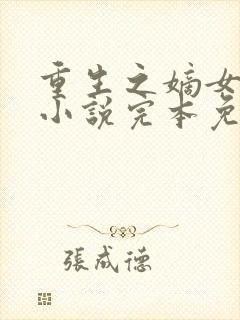 重生之嫡女
小說完本免
張成德